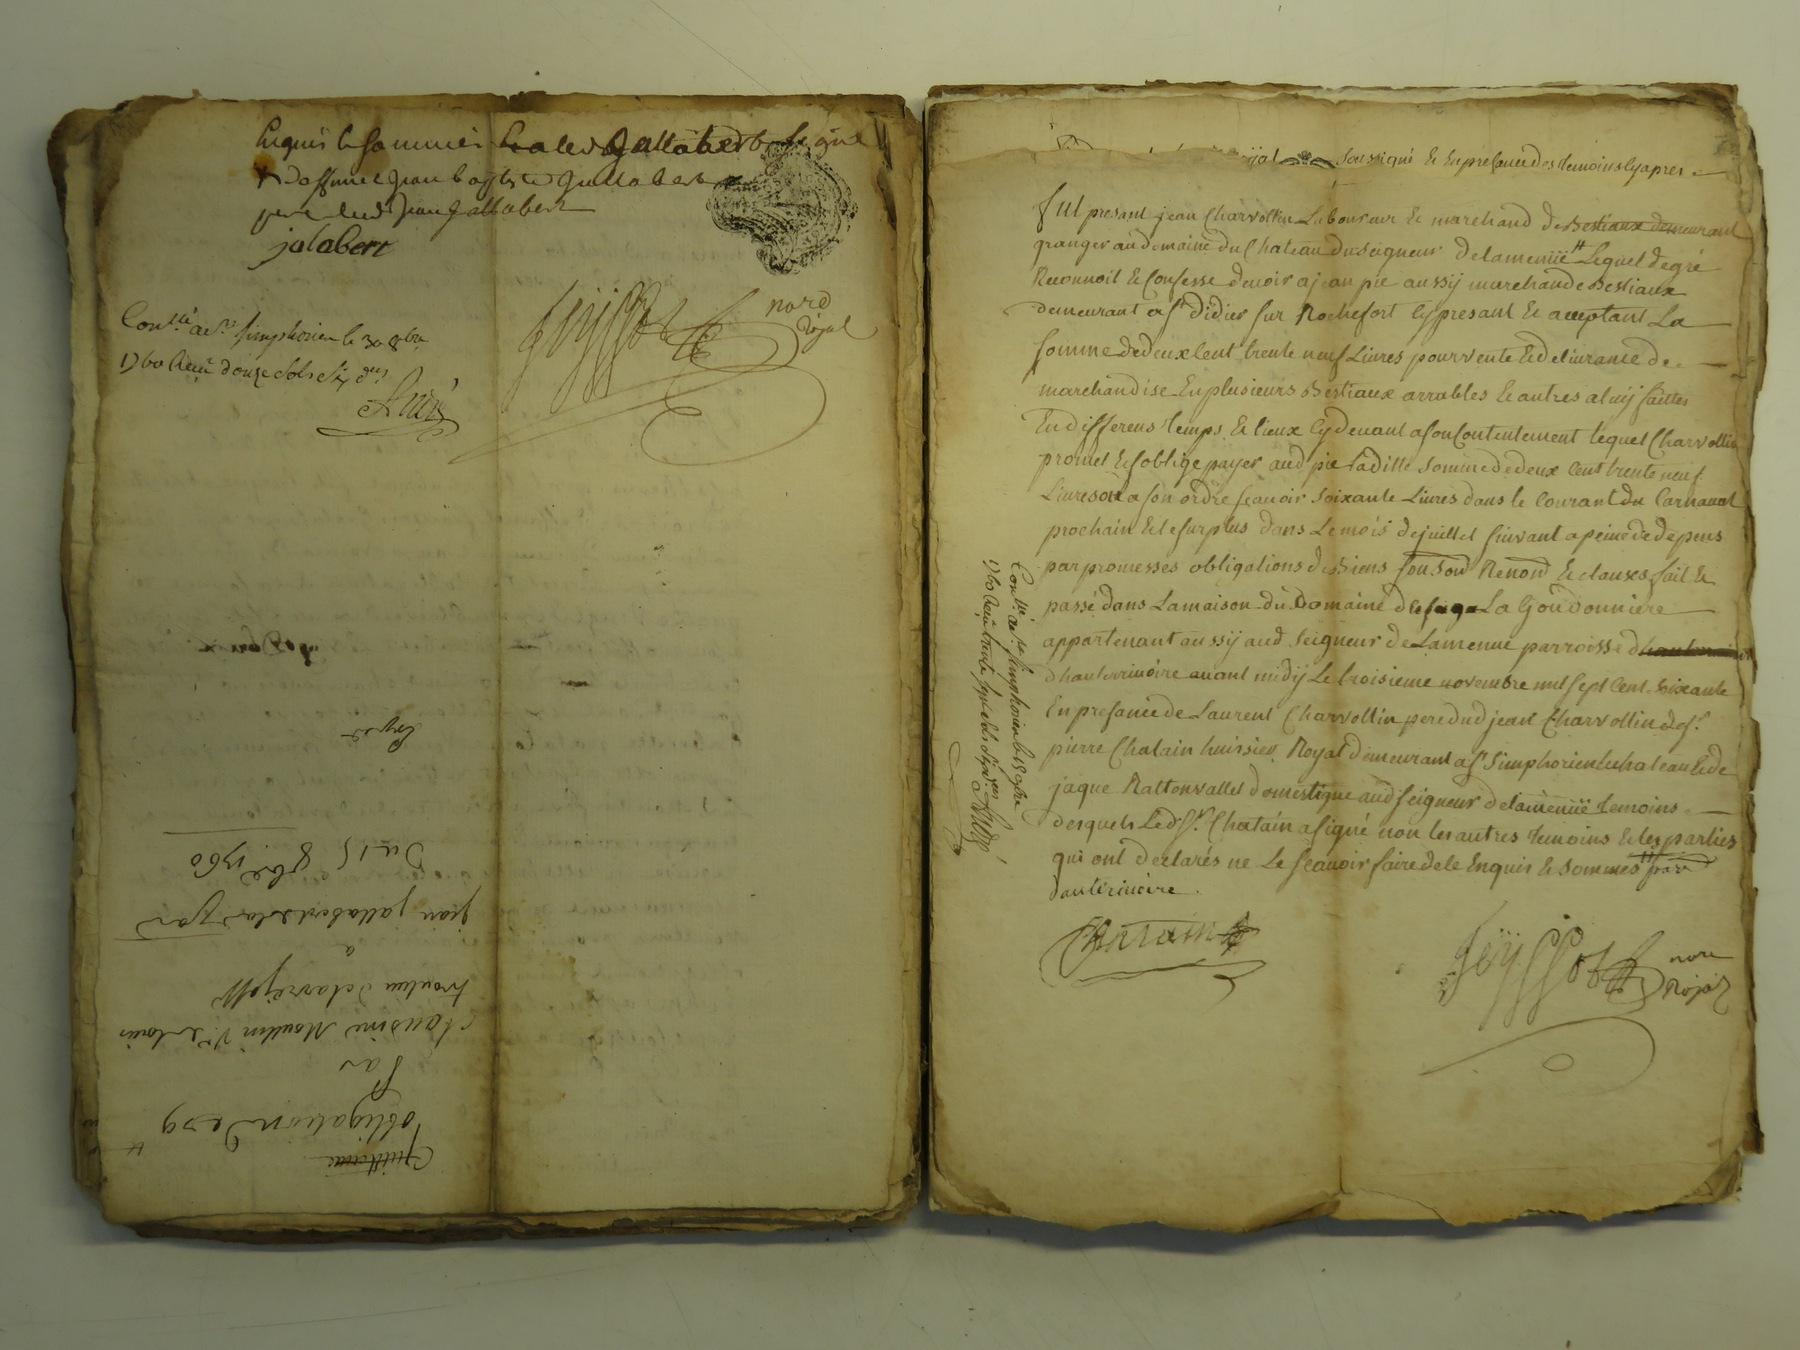 Enquis & sommés & a led Jallabert signé
& deffunct Jean baptiste Jallabert
pere dud Jean Jallabert
jalabert
nore
Royal
Conllé a St Simphorien le 30 8bre
1760 Receu douze sols six drs
Quittance
obligation de 59 tt
Par
claudine Moulin Ve de Louis
a
jean jallabert
Du 15 8bre 1760
Exped
Royal soussigné & En presance des temoins Cy apres
fut presant jean Charvollin Laboureur & marchand de Bestiaux demeurant
granger au domaine du Chateau du Seigneur de lamenüe Lequel de gré
Reconnoit & Confesse devoir a jean pie aussy marchand de Bestiaux
demeurant a St didier sur Rochefort Cy presant & acceptant La
somme de deux Cent trente neuf Livres pour vente & delivrance de
marchandise En plusieurs Bestiaux arrables & autres a luy faittes
En differens temps & lieux Cy devant a son Contentement lequel Charvollin
promet & soblige payer aud pie ladille somme de deux Cent trente neuf
Livres ou a son ordre scavoir soixante Livres dans le Courant du Carnaval
prochain & le surplus dans Le mois de juillet suivant a peine de depens
par promesses obligations de Biens Renond & clauses fait &
passé dans La maison du Domaine de La Goudonniere
appartenant aussy aud Seigneur de Lamenue parroisse
dhauterivoire avant midy Le troisieme novembre mil sept Cent soixante
En presance de Laurent Charvollin pere dud jean Charvollin de sr
pierre Chatain huissier Royal demeurant a St Simphorien le chateau & de
jaque Ratton vallet domestique aud seigneur de lamenüe temoins
desquels Led Sr Chatain a signé non les autres temoins & les parties
qui ont declarés ne Le scavoir faire de ce Enquis & sommés
dauterivoire
Chatain
nore
Royal
Conllé a St Simphorien le 15 9bre
1760 Receu trente